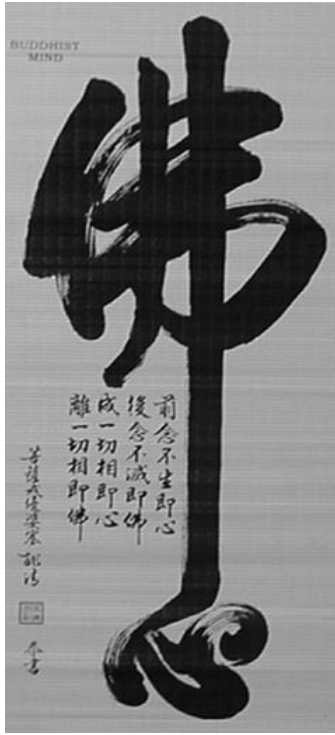 BUDDHIST
MIND
佛心
前念不生即心
後念不滅即佛
成一切相即心
離一切相即佛
菩薩戒優婆塞
恭書